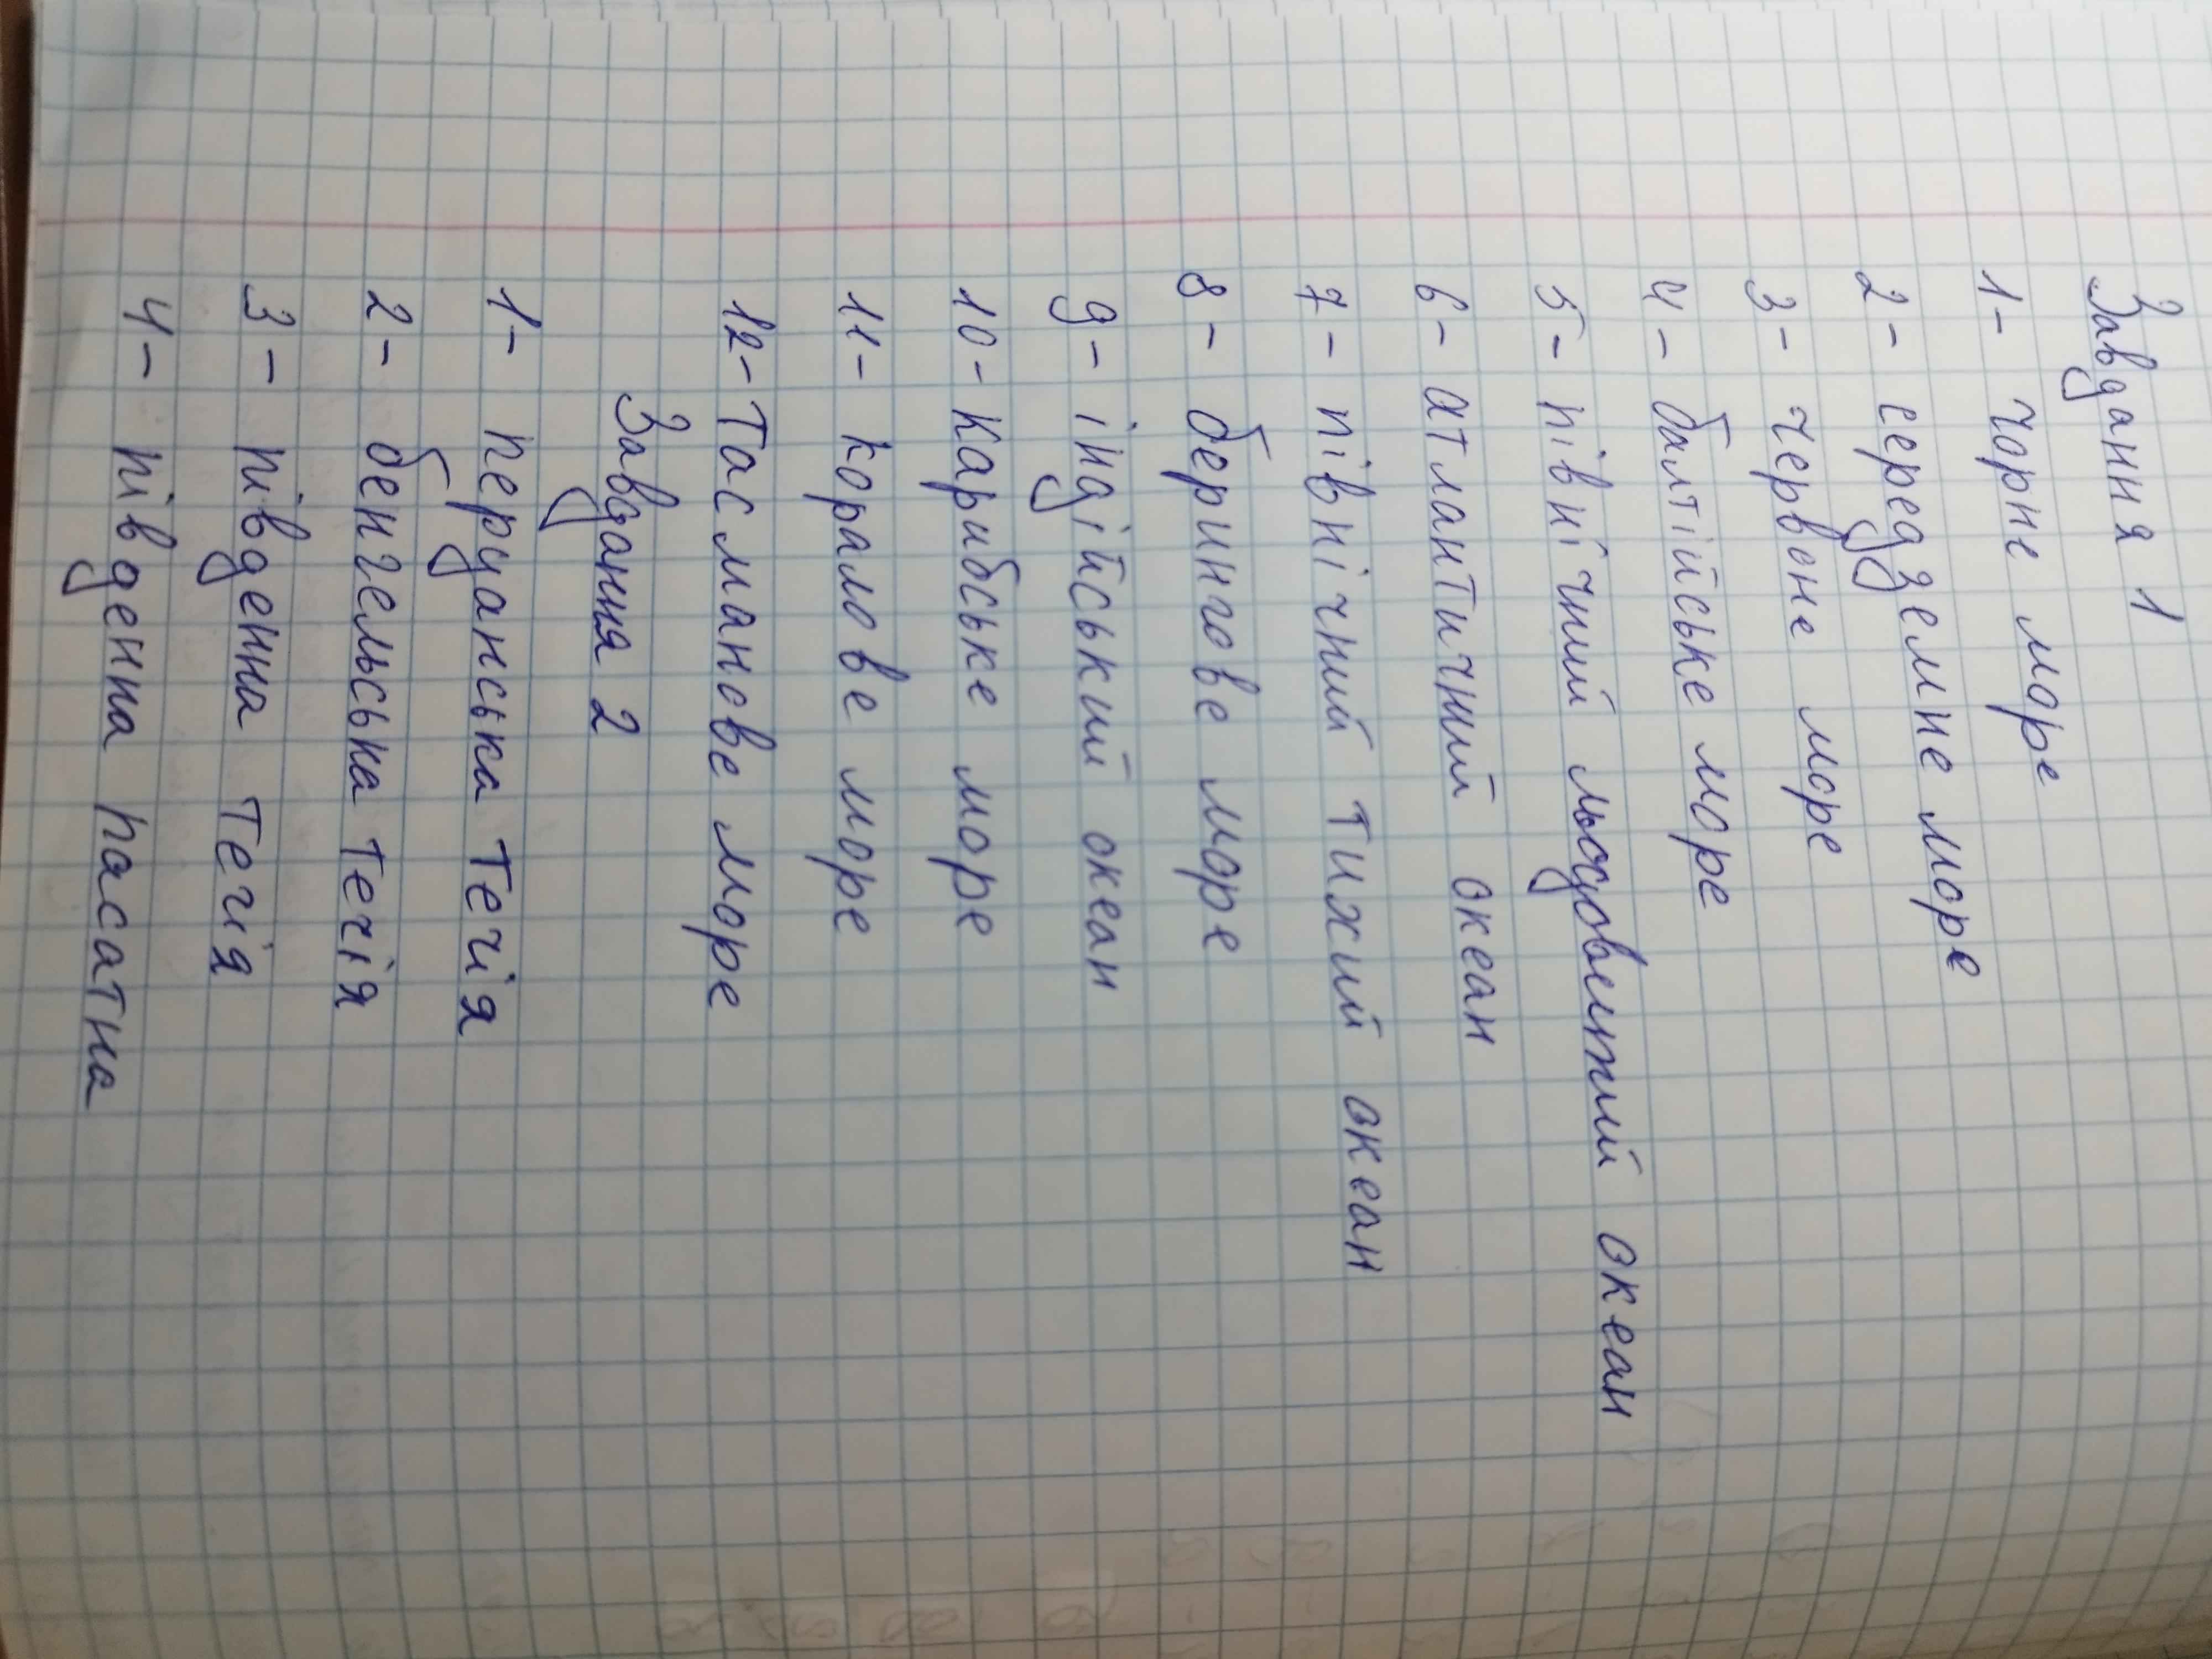 Завдання 1
1- чорне море
2- середземне море
3- червоне море
4- балтійське море
5- північний льодовитий океан
6- атлантичний океан
7- північний тихий океан
8- берингове море
9- індійський океан
10- Карибське море
11- коралове море
12- Тасманове море
Завдання 2
1- перуанська течія
2- бенгельська течія
3- південна течія
4- південна пасатна